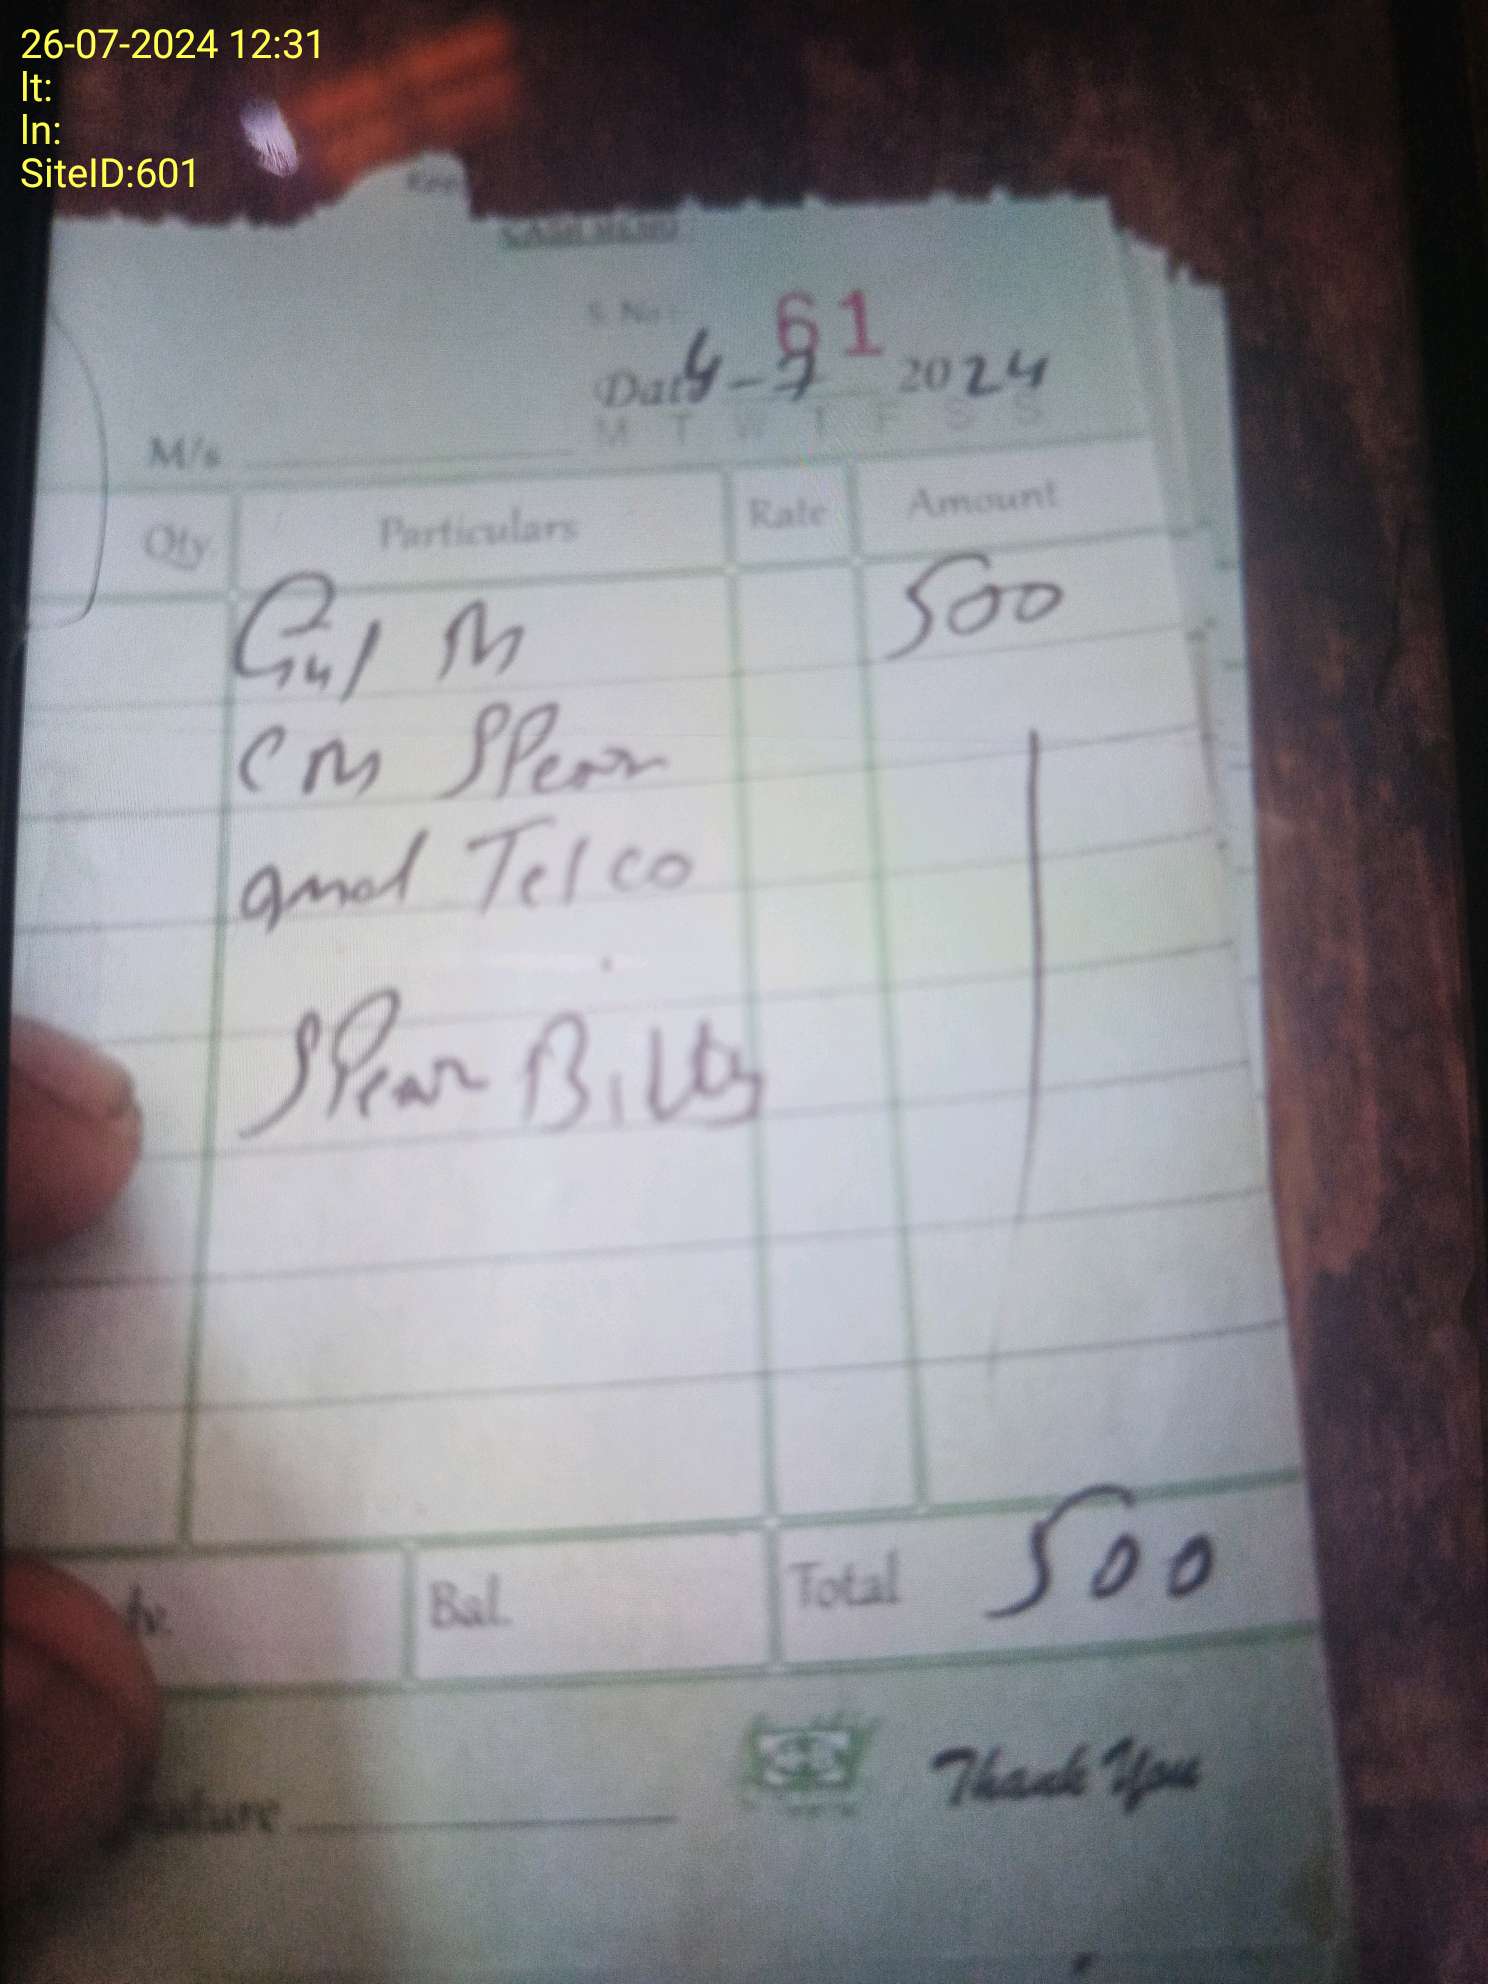 26-07-2024 12:31
lt:
ln:
SiteID:601
CASH MEMO
S. No 61
Date 4-7 2024
M T W T F S S
M/s
Qty. Particulars Rate Amount
Gul M 500
CM SPear
and Telco
SPear Bilty
Bal. Total 500
Thank You